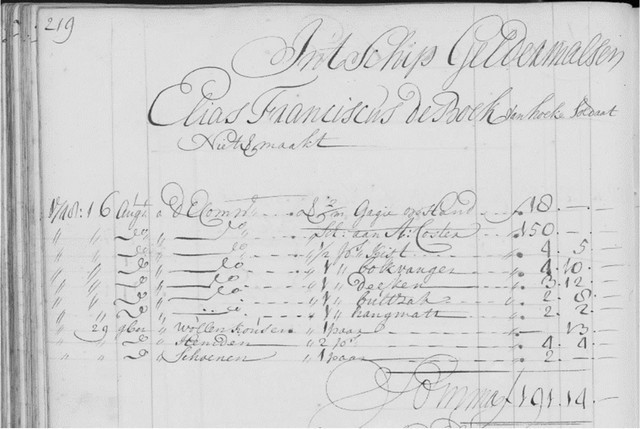 219
In't Schip Geldermalsen
Elias Franciscus de Boek van hoek Soldaat
Niet gemaakt
1748: 16 Augt a D'E Comp 2/m Gagie op hand f 18 . —
" " do " do aan A: Costen " 150 . —
" " do " do " 1/2 ps kist " 4 . 5
" " do " do " 1 " bokvanger " 4 . 10
" " do " do " 1 " deeken " 3 . 12
" " do " do " 1 " bultzak " 2 . 8
" " do " " 1 " hangmatt " 2 . 2
" 29 9ber " wollen kousen " 1 paar " — 13
" " do " Hemden " 2 ps " 4 . 4
" " do " Schoenen " 1 paar " 2 . —
Somma f 191 . 14 —